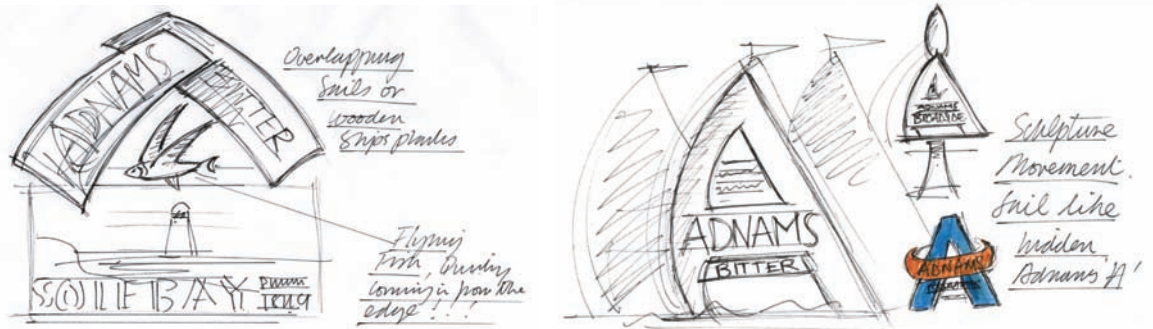 ADNAMS
BITTER
Overlapping
Sails or
wooden
Ships planks
Flying
Fish,
coming in from the
edge!!!
SOLE BAY
ADNAMS
BITTER
ADNAMS
BROADSIDE
ADNAMS
Sculpture
Movement.
Sail like
hidden
Adnams 'A'